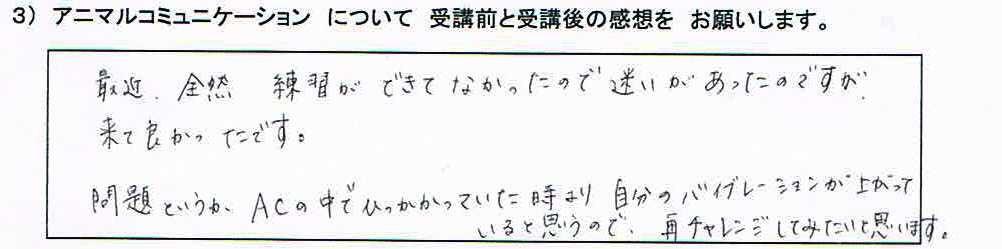 3） アニマルコミュニケーション について 受講前と受講後の感想を お願いします。
最近、全然 練習ができてなかったので迷いがあったのですが、
来て良かったです。
問題というか、ACの中でひっかかっていた時より 自分のバイブレーションが上がって
いると思うので、再チャレンジしてみたいと思います。